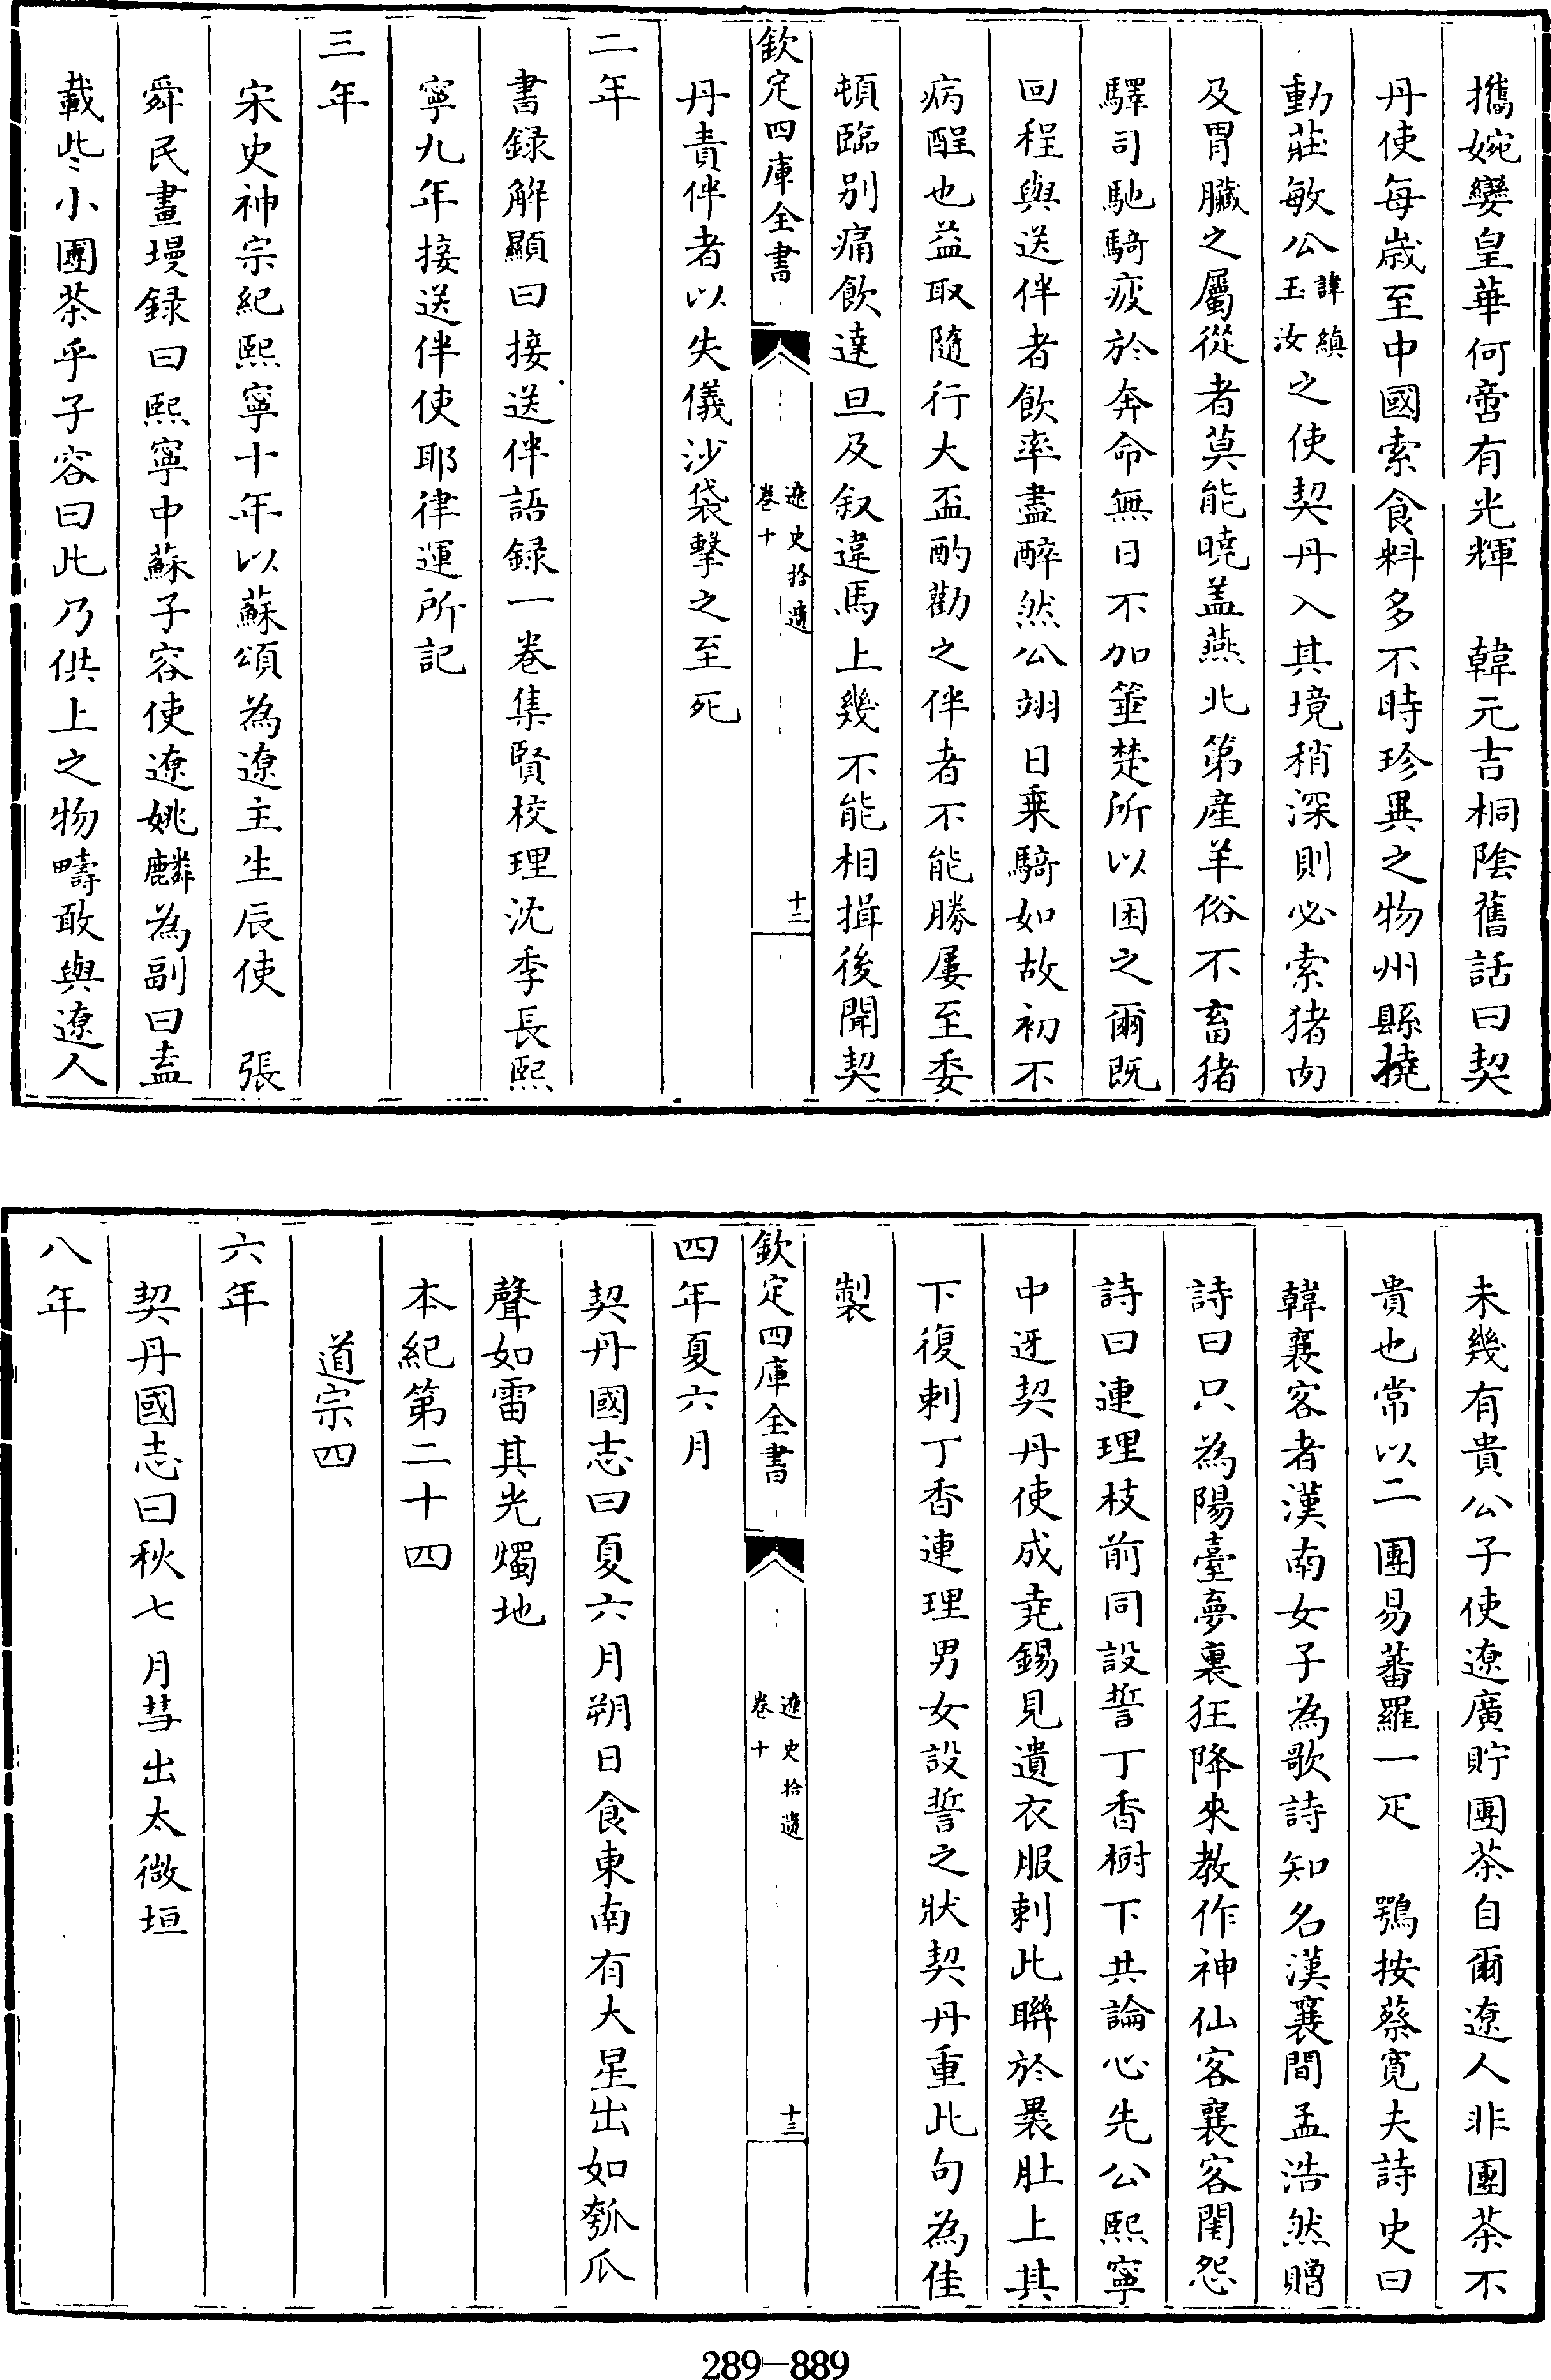 攜婉孌皇華何啻有光輝　韓元吉桐陰舊話曰契
丹使每歳至中國索食料多不時珍異之物州縣撓
動莊敏公諱縝玉汝之使契丹入其境稍深則必索猪肉
及胃臟之屬從者莫能曉盖燕北第産羊俗不畜猪
驛司馳騎疲於奔命無日不加箠楚所以困之爾既
回程與送伴者飲率盡醉然公翊日乗騎如故初不
病酲也益取隨行大盃酌勸之伴者不能勝屢至委
頓臨别痛飲達旦及叙違馬上幾不能相揖後聞契
欽定四庫全書
遼史拾遺
卷十
十二
丹責伴者以失儀沙袋擊之至死
二年
書録解顯曰接送伴語録一卷集賢校理沈季長熙
寧九年接送伴使耶律運所記
三年
宋史神宗紀熙寧十年以蘇頌為遼主生辰使　張
舜民畫墁録曰熙寧中蘇子容使遼姚麟為副曰盍
載些小團茶乎子容曰此乃供上之物疇敢與遼人
未幾有貴公子使遼廣貯團茶自爾遼人非團茶不
貴也常以二團易蕃羅一疋　鶚按蔡寛夫詩史曰
韓襄客者漢南女子為歌詩知名漢襄間孟浩然贈
詩曰只為陽臺夢裏狂降來教作神仙客襄客閨怨
詩曰連理枝前同設誓丁香樹下共論心先公熙寧
中迓契丹使成堯錫見遺衣服刺此聯於褁肚上其
下復刺丁香連理男女設誓之狀契丹重此句為佳
製
欽定四庫全書
遼史拾遺
卷十
十三
四年夏六月
契丹國志曰夏六月朔日食東南有大星出如瓠瓜
聲如雷其光燭地
本紀第二十四
道宗四
六年
契丹國志曰秋七月彗出太微垣
八年
289-889